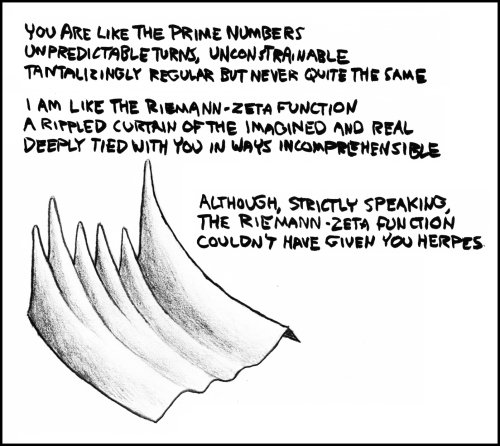 YOU ARE LIKE THE PRIME NUMBERS
UNPREDICTABLE TURNS, UNCONSTRAINABLE
TANTALIZINGLY REGULAR BUT NEVER QUITE THE SAME
I AM LIKE THE RIEMANN-ZETA FUNCTION
A RIPPLED CURTAIN OF THE IMAGINED AND REAL
DEEPLY TIED WITH YOU IN WAYS INCOMPREHENSIBLE
ALTHOUGH, STRICTLY SPEAKING,
THE RIEMANN-ZETA FUNCTION
COULDN'T HAVE GIVEN YOU HERPES